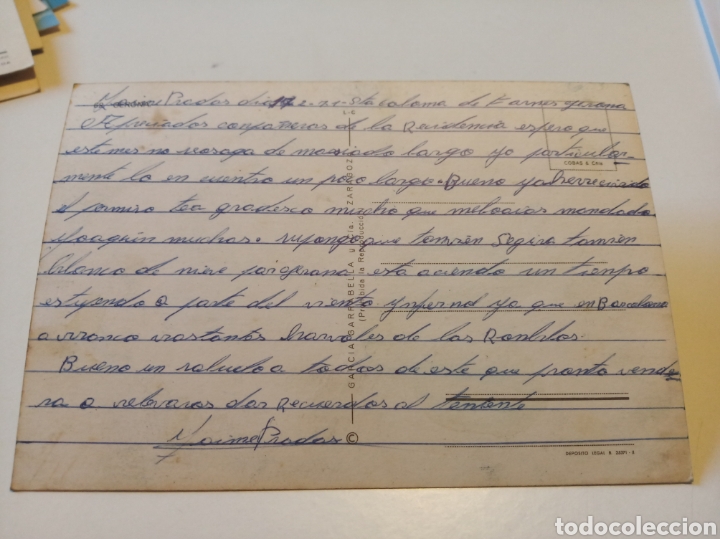 Jaime Prados dia 17-2-71-Sta coloma de Farnes gerona
Apreciados conpañeros de la Recidencia espero que
este mes no seosaga de maciado largo yo particular-
mente lo en cuentro un poco largo. Bueno ya he rrecivido
el permiso te a gradesco mucho que me lo aias mandado
Joaquin muchas. supongo que tamvien Segira tamvien
Blanco de nieve por gerona esta aciendo un tienpo
estupendo a parte del viento ynfernal ya que en Barcelona
a rranco vastantes harvoles de las Ranblas.
Bueno un saludo a todos de este que pronto vende-
ra a relevaros dar Recuerdos al teniente
Jaime Prados
COBAS & Cía
GARCIA GARRABELLA y Cía. - ZARAGOZA
(Prohibida la Reproducción)
©
DEPOSITO LEGAL B.